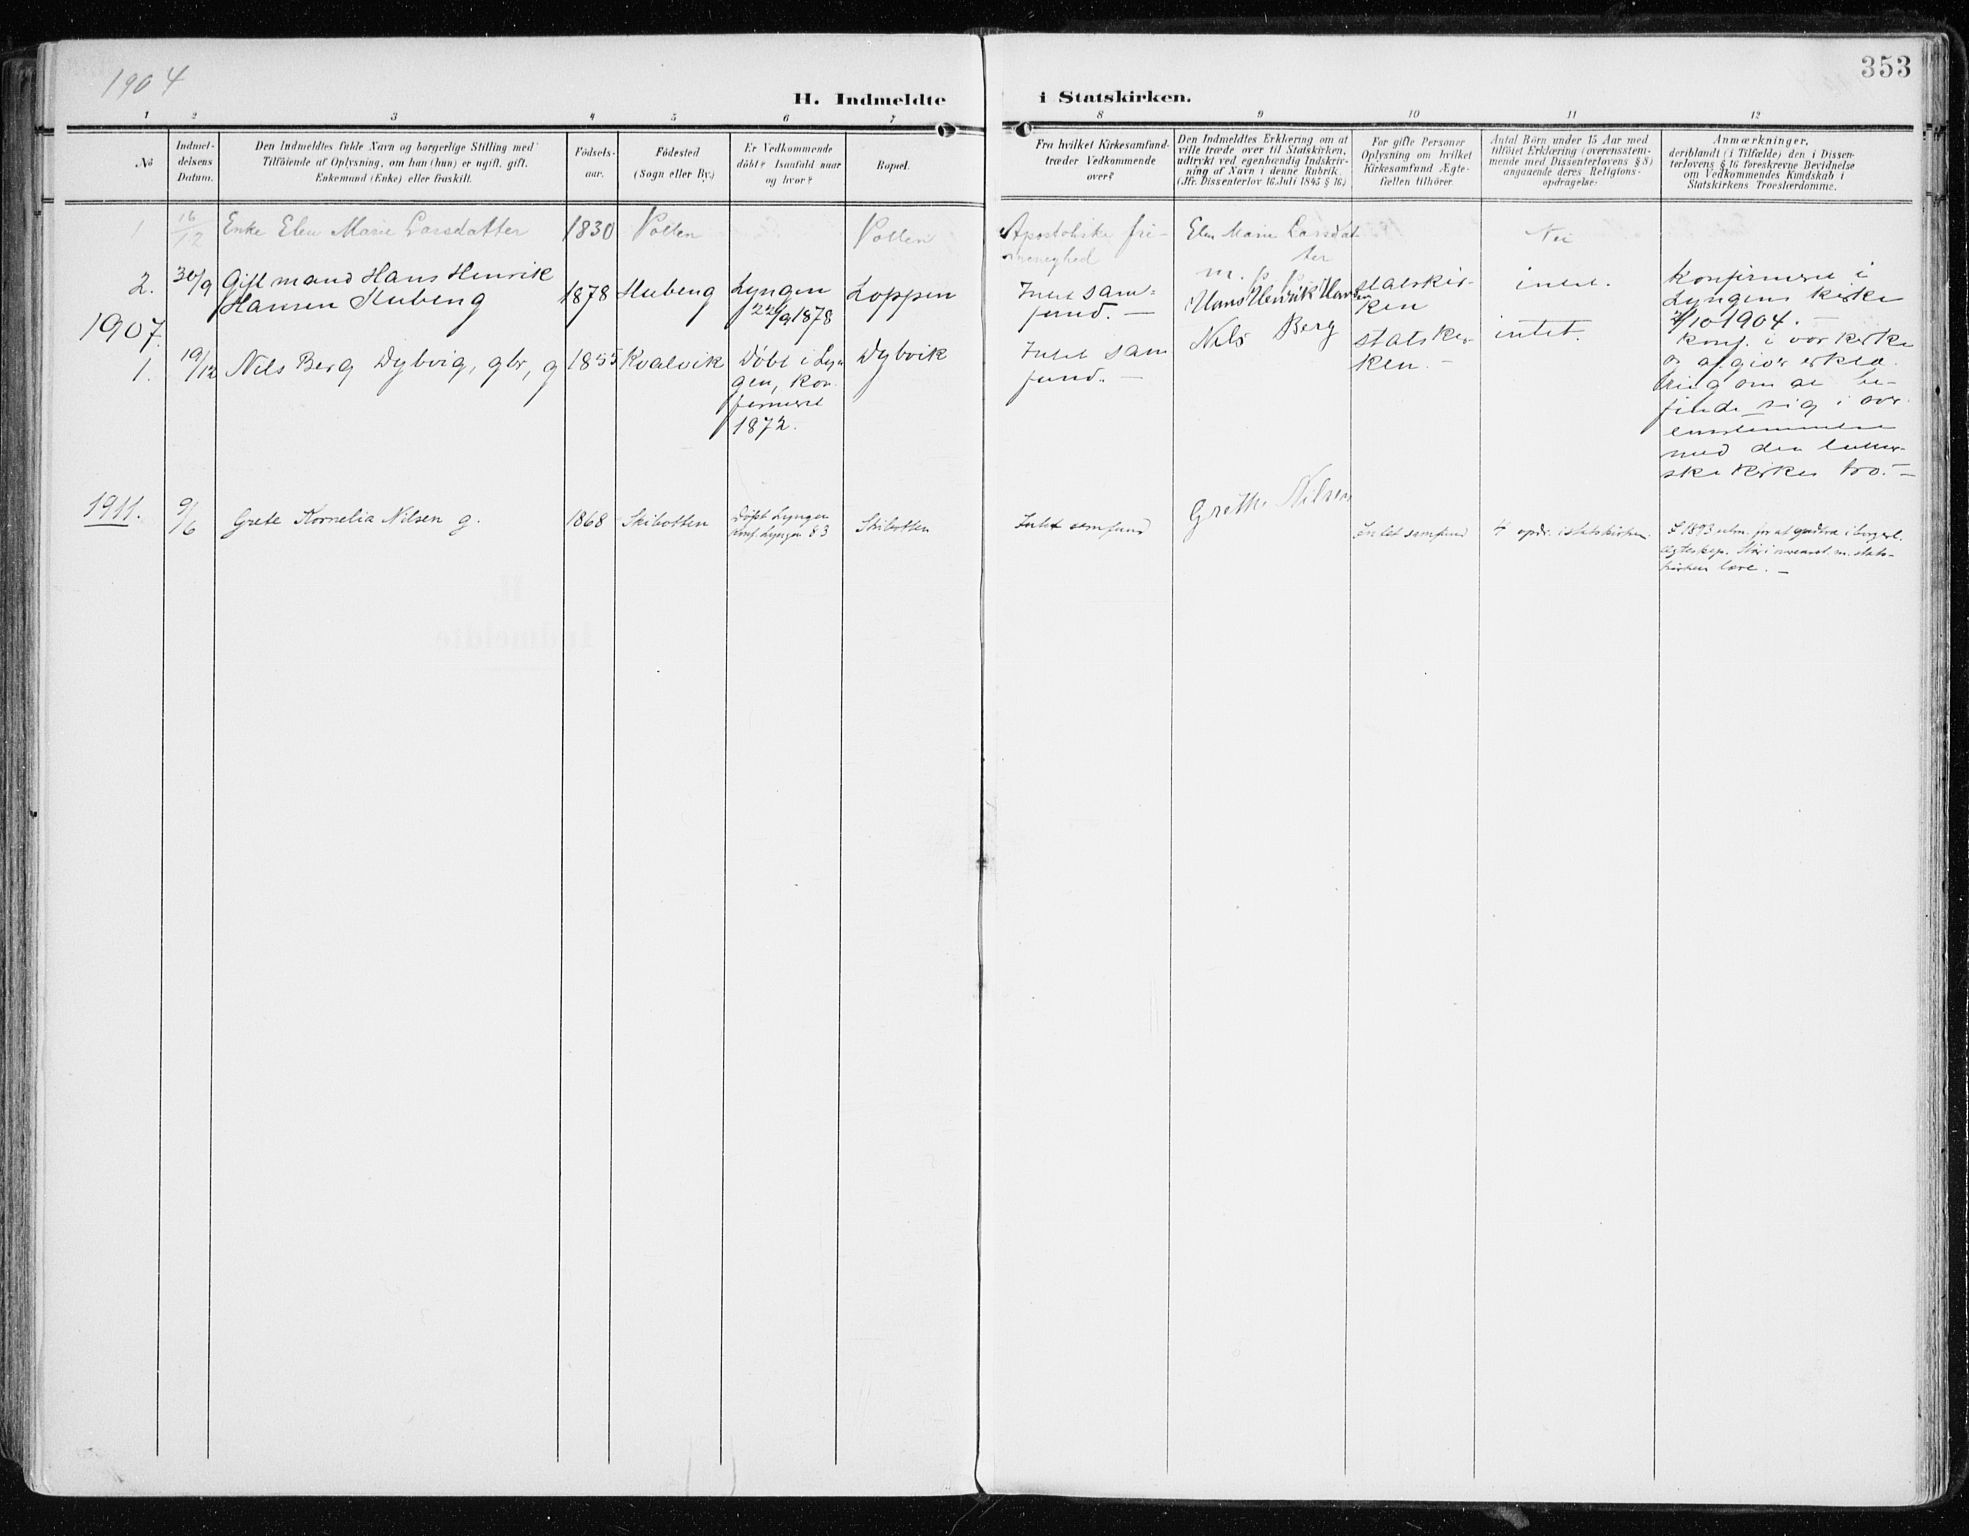 353
1904
H. Indmeldte i Statskirken.
1 2 3 4 5 6 7 8 9 10 11 12
No
Indmel-
delsens
Datum.
Den Indmeldtes fulde Navn og borgerlige Stilling med
Tilföiende af Oplysning, om han (hun) er ugift, gift,
Enkemand (Enke) eller fraskilt.
Födsels-
aar.
Födested
(Sogn eller By.)
Er Vedkommende
döbt? Isaafald naar
og hvor?
Bopæl.
Fra hvilket Kirkesamfund
træder Vedkommende
over?
Den Indmeldtes Erklæring om at
ville træde over til Statskirken,
udtrykt ved egenhændig Indskriv-
ning af Navn i denne Rubrik.
(Jfr. Dissenterlov 16. Juli 1845 § 16)
For gifte Personer
Oplysning om hvilket
Kirkesamfund Ægte-
fællen tilhörer.
Antal Börn under 15 Aar med
tilföiet Erklæring (overensstem-
mende med Dissenterlovens § 8)
angaaende deres Religions-
opdragelse.
Anmærkninger,
deriblandt (i Tilfælde) den i Dissen-
terlovens § 16 foreskrevne Bevidnelse
om Vedkommendes Kundskab i
Statskirkens Troeslærdomme.
1 16/12 Enke Elen Marie Larsdatter 1830 Pollen Pollen Apostoliske fri-
menighed
Elen Marie Larsdat
ter
m. P. P.
Nei
2. 30/9 Gift mand Hans Henrik
Hansen Stubeng
1878 Stubeng Lyngen
22/9 1878
Loppen
Intet sam-
fund. —
Hans Henrik Hansen
statskir-
ken
intet.
Konfirmeret i
Lyngens kirke
2/10 1904. —
1907.
1. 19/12 Nils Berg Dybvig, gbr, g 1855 Kvalvik
Døbt i Lyn-
gen, kon-
firmeret
1872.
Dybvik
Intet sam
fund. —
Nils Berg
statskir-
ken. —
intet.
Konf. i vor kirke
og afgiør erklæ-
ring om at be-
finde sig i over-
ensstemmelse
med den luther-
ske kirkes tro. —
1911. 9/6 Grete Kornelia Nilsen g. 1868 Skibotten
Døpt Lyngen
konf. Lyngen 83
Skibotten
Intet samfund
Grethe Nilsen
Intet samfund
4 opdr. i statskirken.
I 1893 utm. for at indtræ i borgerl.
egteskap. Står i overenst. m. stats-
kirkens lære. —